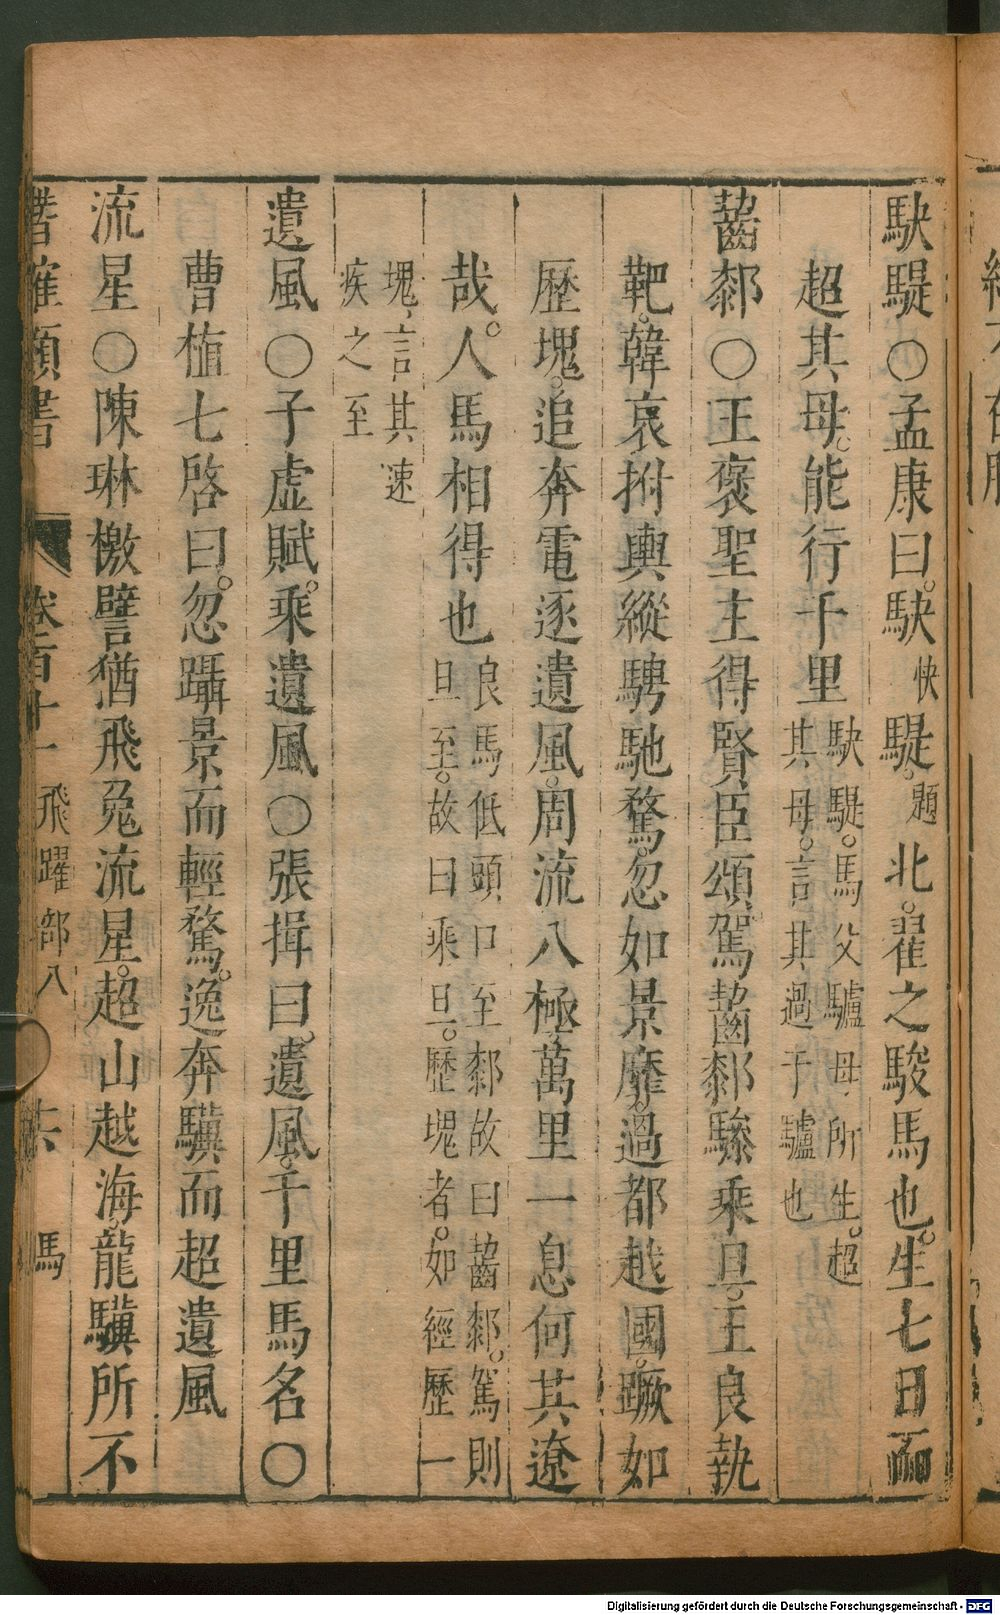 駃騠〇孟康曰。駃快騠。題北。翟之駿馬也。生七日而
超其母。能行千里駃騠。馬父驢母所生。超其母。言其過于驢也
齧䣛〇王褒聖主得賢臣頌。駕齧䣛驂乘旦。王良執
靶。韓哀拊輿縱騁馳騖。忽如景靡。過都越國。蹶如
歷塊。追奔電逐遺風。周流八極。萬里一息何其遼
哉。人馬相得也良馬低頭口至䣛故曰齧䣛。駕則旦至。故曰乘旦。歷塊者。如經歷一
塊、言其速疾之至
遺風〇子虛賦。乘遺風〇張揖曰。遺風。千里馬名〇
曹植七啓曰。忽躡景而輕騖。逸奔驥而超遺風
流星〇陳琳檄譬猶飛兔流星。超山越海。龍驥所不
卷百十一 飛躍部八 馬
Digitalisierung gefördert durch die Deutsche Forschungsgemeinschaft - DFG